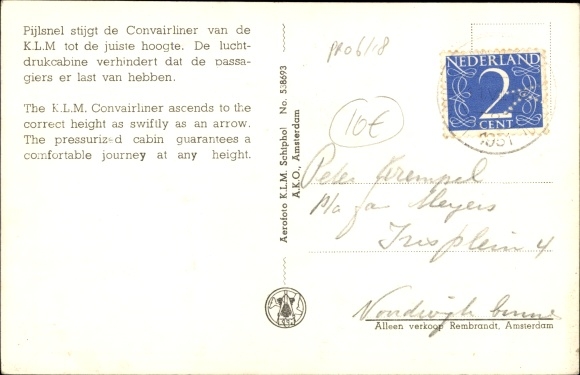 Pijlsnel stijgt de Convairliner van de
K.L.M tot de juiste hoogte. De lucht-
drukcabine verhindert dat de passa-
giers er last van hebben.
The K.L.M. Convairliner ascends to the
correct height as swiftly as an arrow.
The pressurized cabin guarantees a
comfortable journey at any height.
Aerofoto K.L.M. Schiphol No. 538693
A.K.O., Amsterdam
10€
NEDERLAND
2
CENT
1951
Peter Krempel
p/a fam Meyers
Irisplein 4
Noordwijk binnen
Alleen verkoop Rembrandt, Amsterdam